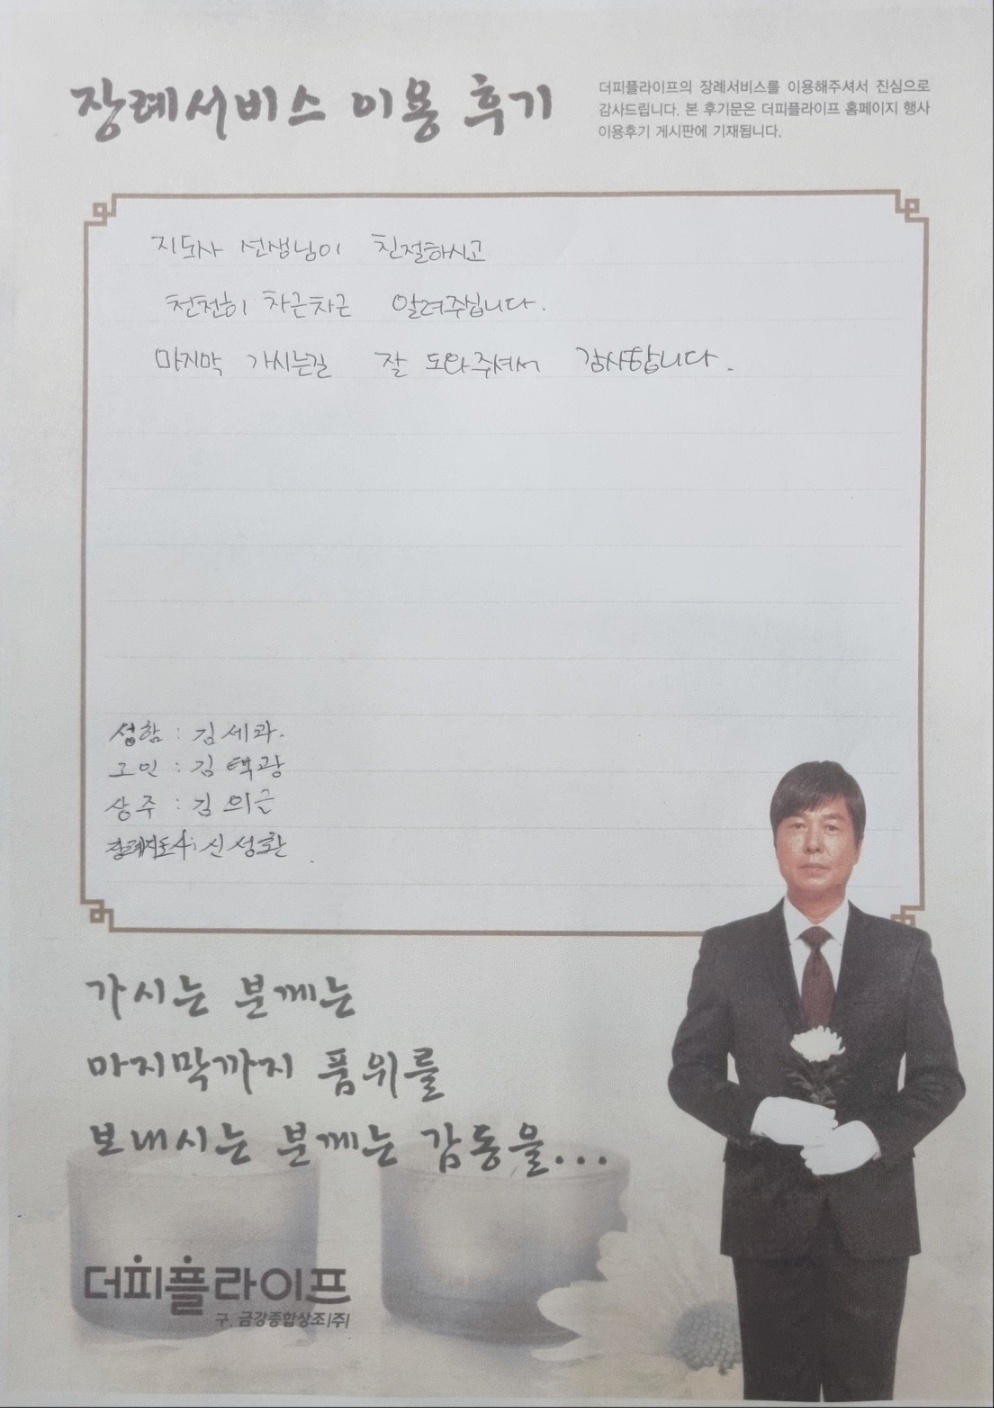 장례서비스 이용 후기
더피플라이프의 장례서비스를 이용해주셔서 진심으로
감사드립니다. 본 후기문은 더피플라이프 홈페이지 행사
이용후기 게시판에 기재됩니다.
지도사 선생님이 친절하시고
천천히 차근차근 알려주십니다.
마지막 가시는길 잘 도와주셔서 감사합니다.
성함 : 김세라.
고인 : 김택광
상주 : 김의근
장례지도사: 신성환
가시는 분께는
마지막까지 품위를
보내시는 분께는 감동을...
더피플라이프
구. 금강종합상조(주)